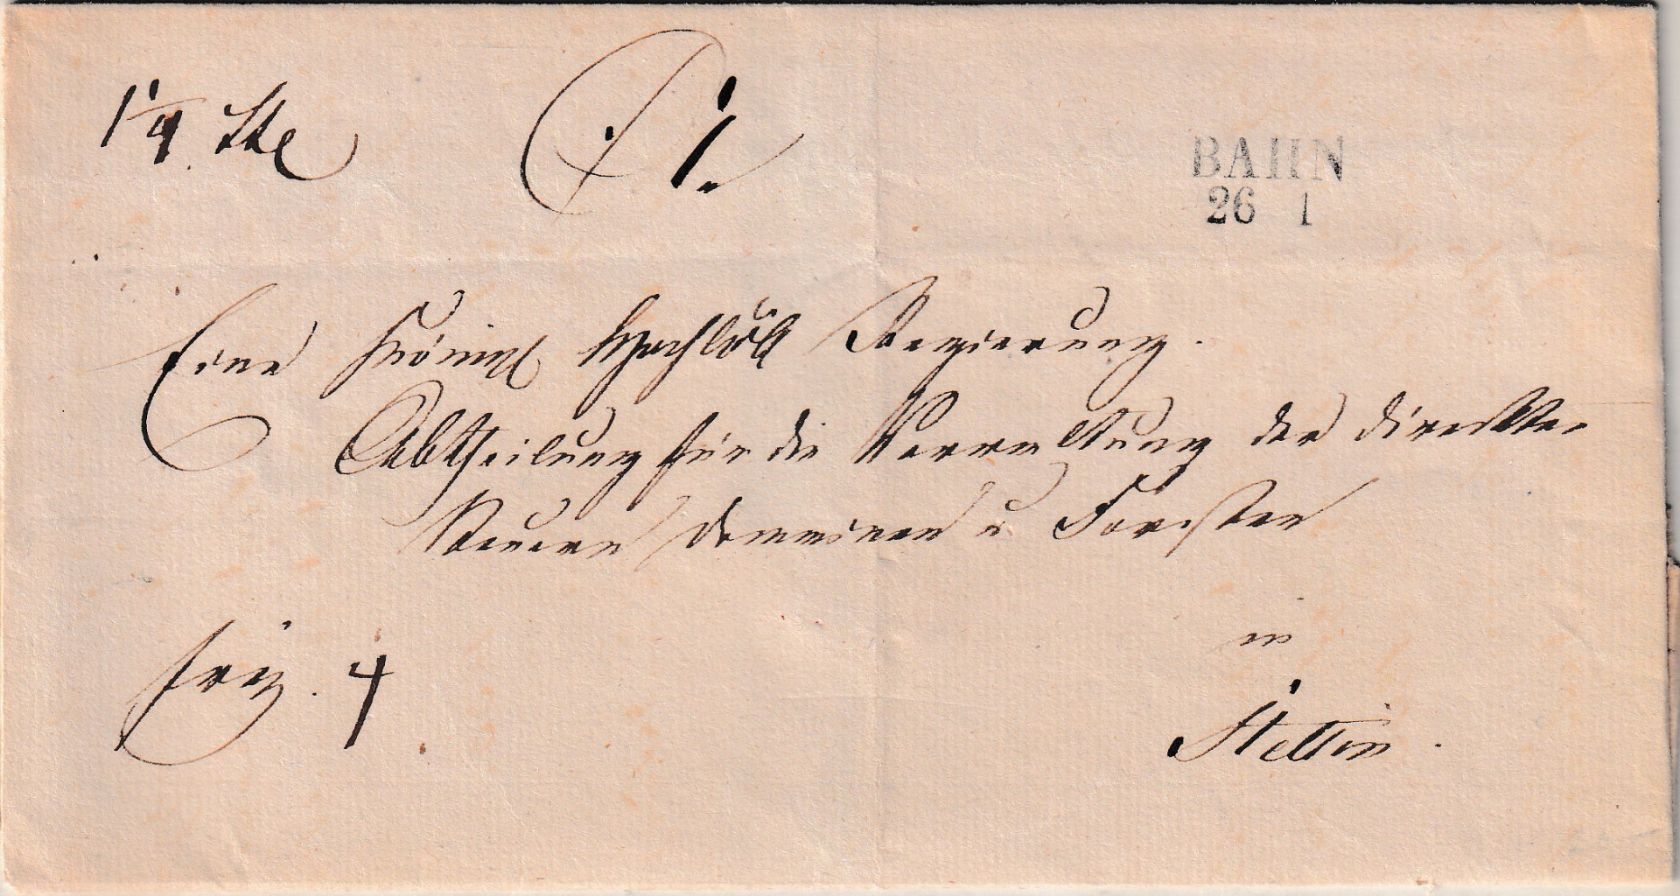 1 1/4 Lth
1
BAHN
26 1
Eine Königl Hochlöbl Regierung.
Abtheilung für die Verwaltung der direkten
Steuern Domainen u Forsten
in
Stettin.
4